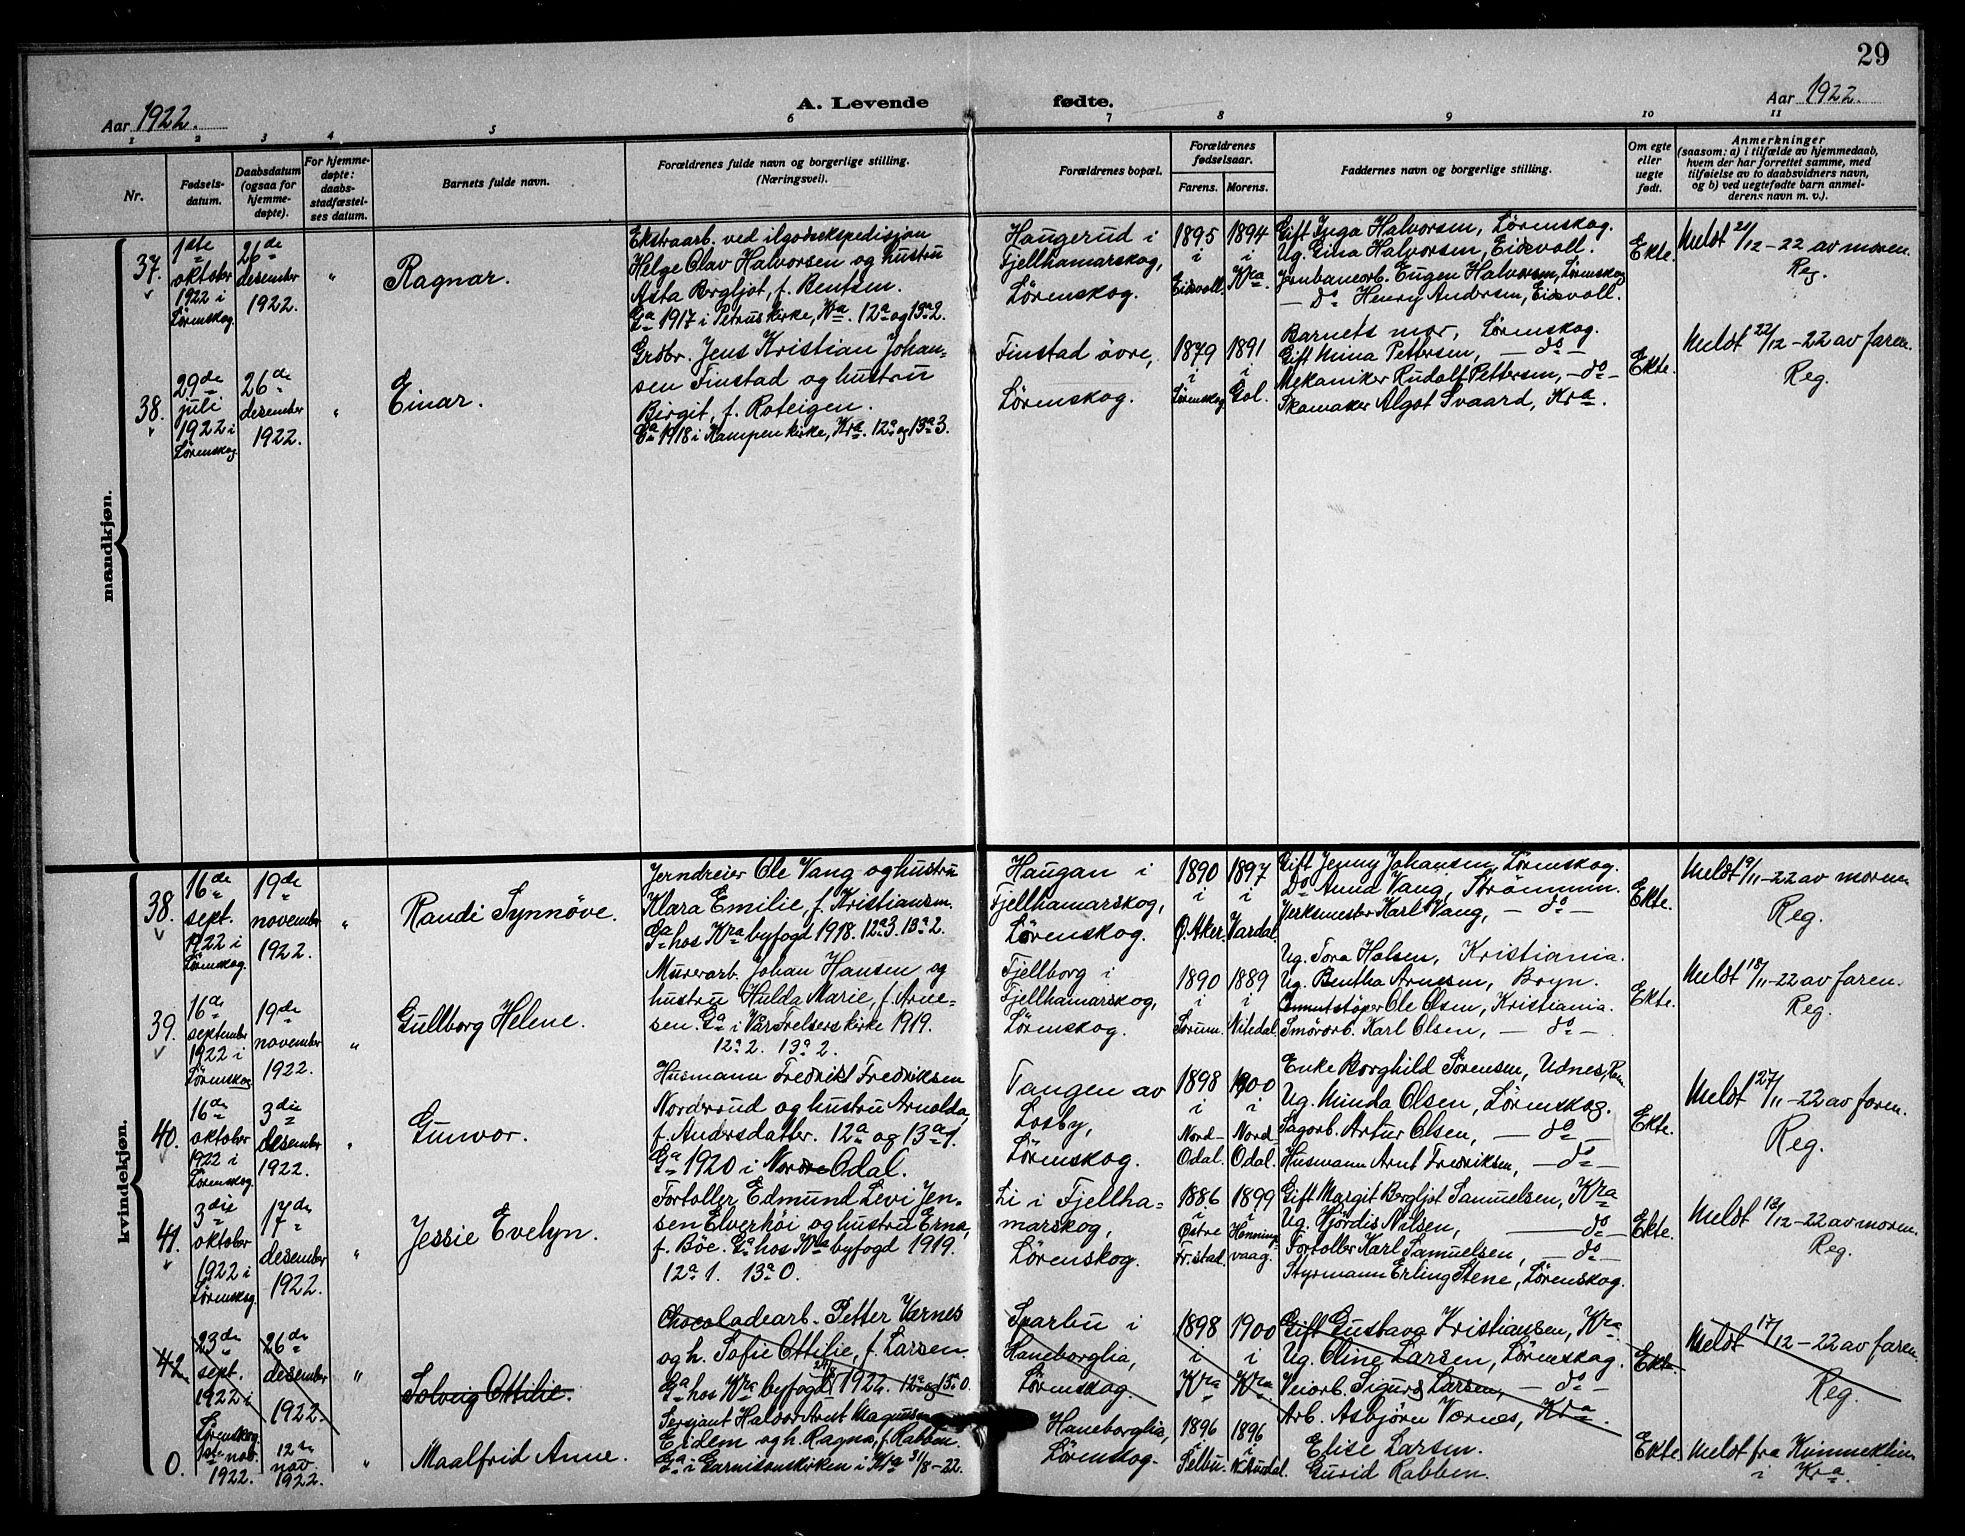 29
Aar 1922.
A. Levende fødte.
Aar 1922.
1 2 3 4 5 6 7 8 9 10 11
Nr.
Fødsels-
datum.
Daabsdatum
(ogsaa for
hjemme-
døpte).
For hjemme-
døpte:
daabs-
stadfæstel-
ses datum.
Barnets fulde navn.
Forældrenes fulde navn og borgerlige stilling.
(Næringsvei).
Forældrenes bopæl.
Forældrenes
fødselsaar.
Farens. Morens.
Faddernes navn og borgerlige stilling.
Om egte
eller
uegte
født.
Anmerkninger
(saasom: a) i tilfælde av hjemmedaab,
hvem der har forrettet samme, med
tilføielse av to daabsvidners navn,
og b) ved uegtefødte barn anmel-
derens navn m. v.).
mandkjøn.
37.
1ste
oktober
1922 i
Lørenskog.
26de
desember
1922.
"
Ragnar.
Ekstraarb. ved ilgodsekspedisjon
Helge Olav Halvorsen og hustru
Asta Bergljot, f. Bentsen.
Ga 1917 i Petruskirke, Kra. 12a og 13a2.
Haugerud i
Fjellhamarskog,
Lørenskog.
1895
i
Eidsvoll.
1894
i
Kra.
Gift Inga Halvorsen, Lørenskog.
Ug. Gina Halvorsen, Eidsvoll.
Jernbanearb. Eugen Halvorsen, Lørenskog
— do Henry Andersen, Eidsvoll.
Ekte.
Meldt 21/12-22 av moren.
Reg.
38.
29de
juli
1922 i
Lørenskog
26de
desember
1922.
"
Einar.
Grdbr. Jens Kristian Johan-
sen Finstad og hustru
Birgit, f. Roteigen.
Ga 1918 i Kampen kirke, Kra. 12a og 13a3.
Finstad øvre,
Lørenskog.
1879
i
Lørenskog
1891
i
Gol.
Barnets mor, Lørenskog.
Gift Mina Pettersen, — do —
Mekaniker Rudolf Pettersen, — do —
Skomaker Algot Svaard, Kra.
Ekte.
Meldt 22/12-22 av faren.
Reg.
kvindekjøn.
38.
16de
sept.
1922 i
Lørenskog.
19de
november
1922.
"
Randi Synnøve.
Jerndreier Ole Vang og hustru
Klara Emilie, f. Kristiansen.
Ga hos Kra byfogd 1918. 12a3. 13a2.
Haugan i
Fjellhamarskog,
Lørenskog.
1890
i
Ø. Aker.
1897
i
Vardal.
Gift Jenny Johansen, Lørenskog.
Do Anna Vang, Strømmen.
Verksmester Karl Vang, — do —
Ekte.
Meldt 9/11-22 av moren.
Reg.
39.
16de
september
1922 i
Lørenskog
19de
november
1922.
"
Gullborg Helene.
Murerarb. Johan Hansen og
hustru Hulda Marie, f. Arne-
sen. Ga i Vår Frelsers kirke 1919.
12a2. 13a2.
Fjellborg i
Fjellhamarskog,
Lørenskog.
1890
i
Sørum.
1889
i
Nitedal.
Ug. Tora Halsen, Kristiania.
Ug. Bentha Arnesen, Bryn.
Cementstøper Ole Olsen, Kristiania.
Smørarb. Karl Olsen, — do —
Ekte.
Meldt 18/11-22 av faren.
Reg.
40.
16de
oktober
1922 i
Lørenskog.
3die
desember
1922.
"
Gunvor.
Husmann Fredrikt Fredriksen
Norderud og hustru Arnolda,
f. Andersdatter. 12a og 13a1.
Ga 1920 i Nordre Odal.
Tangen av
Losby,
Lørenskog.
1898
i
Nord-
Odal.
1900
i
Nord-
Odal.
Enke Borghild Sørensen, Udnes, Rom
Ug. Minda Olsen, Lørenskog.
Sagarb. Artur Olsen, — do —
Husmann Arnt Fredriksen, — do —
Ekte.
Meldt 27/11-22 av faren.
Reg.
41.
3die
oktober
1922 i
Lørenskog.
17de
desember
1922.
"
Jessie Evelyn.
Fortoller Edmund Levi Jen-
sen Elverhöi og hustru Erna,
f. Böe. Ga hos Kra byfogd 1919.
12a1. 13a0.
Li i Fjellha-
marskog,
Lørenskog.
1886
i
Østre
Fr.stad.
1899
i
Honning-
vaag.
Gift Margit Bergljot Samuelsen, Kra
Ug. Hjördis Nilsen, — do —
Fortoller Karl Samuelsen, — do —
Styrmann Erling Stene, Lørenskog.
Ekte.
Meldt 12/12-22 av moren.
Reg.
42.
23de
sept.
1922 i
Lørenskog
26de
desember
1922.
"
Solveig Ottilie.
Chocoladearb. Petter Værnes
og h. Sofie Ottilie, f. Larsen.
Ga hos Kra byfogd 24/9 1922. 12a og 13a 0.
Sparbu i
Haneborglia,
Lørenskog.
1898
i
Kra
1900
i
Kra
Gift Gustava Kristiansen, Kra.
Ug. Oline Larsen, Lørenskog.
Veiarb. Sigurd Larsen, — do —
Arb. Asbjørn Værnes, Kra.
Ekte
Meldt 17/12-22 av faren.
Reg.
0.
nov.
1922.
12te
nov.
1922.
"
Maalfrid Anne.
Sersjant Halvor Arnt Magnussen
Eridem og h. Ragna, f. Rabben.
Ga i Garnisonskirken i Kra 31/8-22.
Haneborglia,
Lørenskog.
1896
i
Selbu.
1896
i
Elise Larsen.
Gurid Rabben.
Ekte
Meldt fra Kvinneklin.
i Kra.